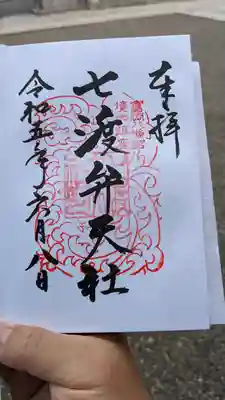 奉拝
七渡弁天社
令和五年六月八日